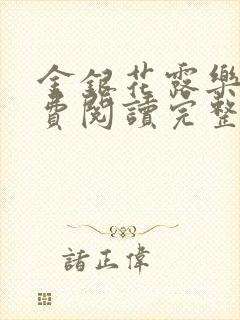 金銀花露樂
費閱讀完整
諸正偉